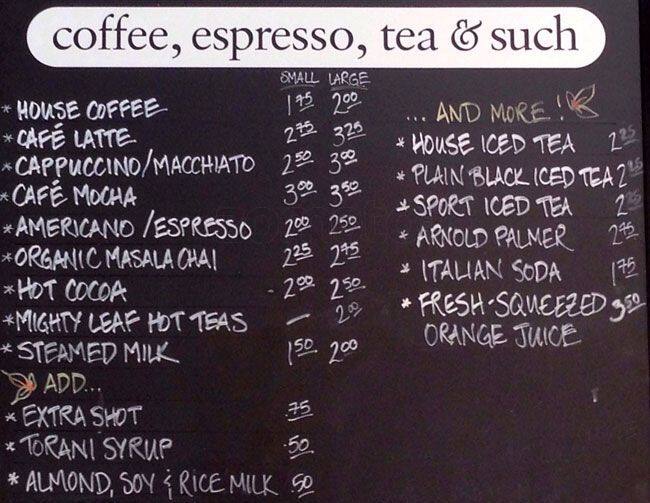 coffee, espresso, tea & such
SMALL LARGE
* HOUSE COFFEE 1.75 2.00
* CAFÉ LATTE 2.75 3.25
* CAPPUCCINO/MACCHIATO 2.50 3.00
* CAFÉ MOCHA 3.00 3.50
* AMERICANO/ESPRESSO 2.00 2.50
* ORGANIC MASALA CHAI 2.25 2.75
* HOT COCOA 2.00 2.50
* MIGHTY LEAF HOT TEAS — 2.00
* STEAMED MILK 1.50 2.00
ADD...
* EXTRA SHOT .75
* TORANI SYRUP .50
* ALMOND, SOY & RICE MILK .50
... AND MORE!
* HOUSE ICED TEA 2.25
* PLAIN BLACK ICED TEA 2.25
* SPORT ICED TEA 2.25
* ARNOLD PALMER 2.75
* ITALIAN SODA 1.75
* FRESH-SQUEEZED 3.50
ORANGE JUICE